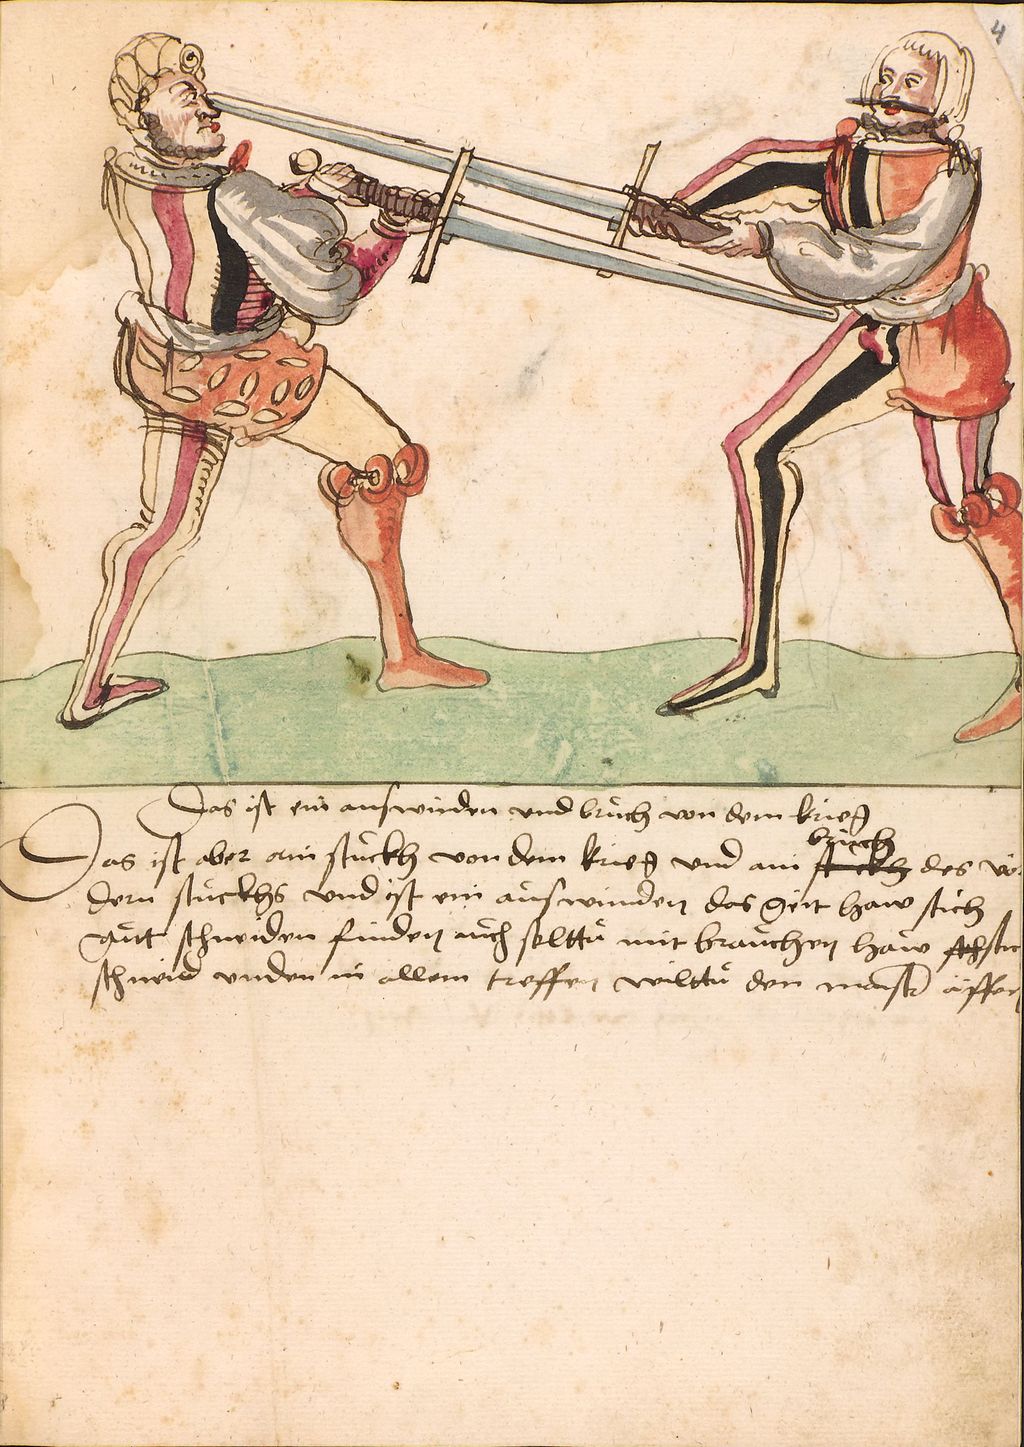 4
Das ist ein auswinden und bruch von dem krieg
bruch
Das ist aber ain stuckh von dem krieg und ain stuckh des vo
dern stuckhs und ist ein auswinden das geit haw stich
schneiden finden auch solttu mit brauchen haw stic
schneid unden in allem treffen wilttu den maistr äffen